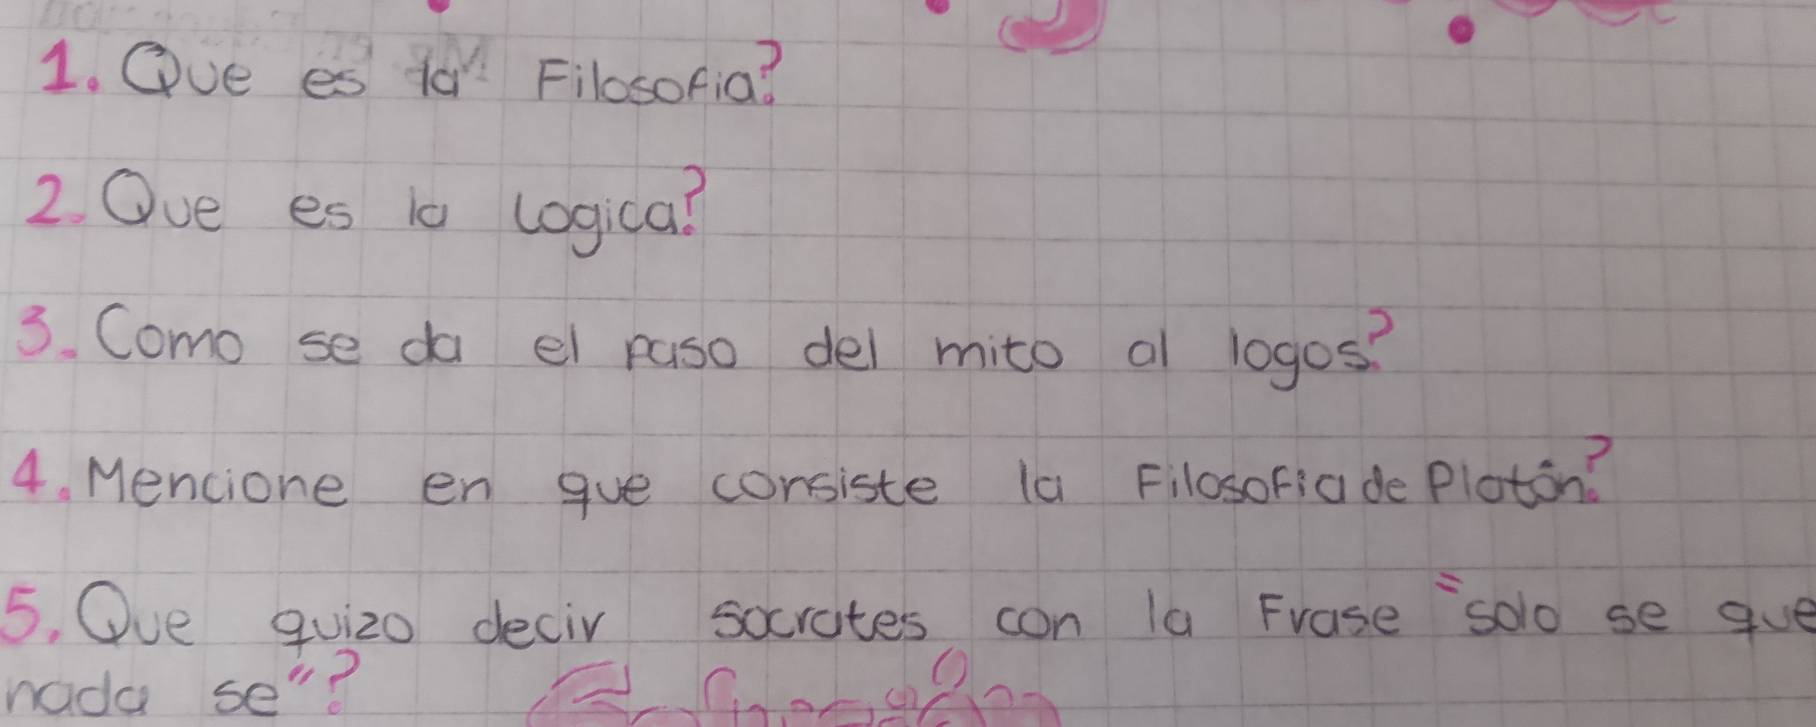 1. Que es la Filosofia?
2. Que es la logica?
3. Como se da el paso del mito al logos?
4. Mencione en que consiste la Filosofia de Platón?
5. Que quizo decir socrates con la Frase "solo se que
nada se"?